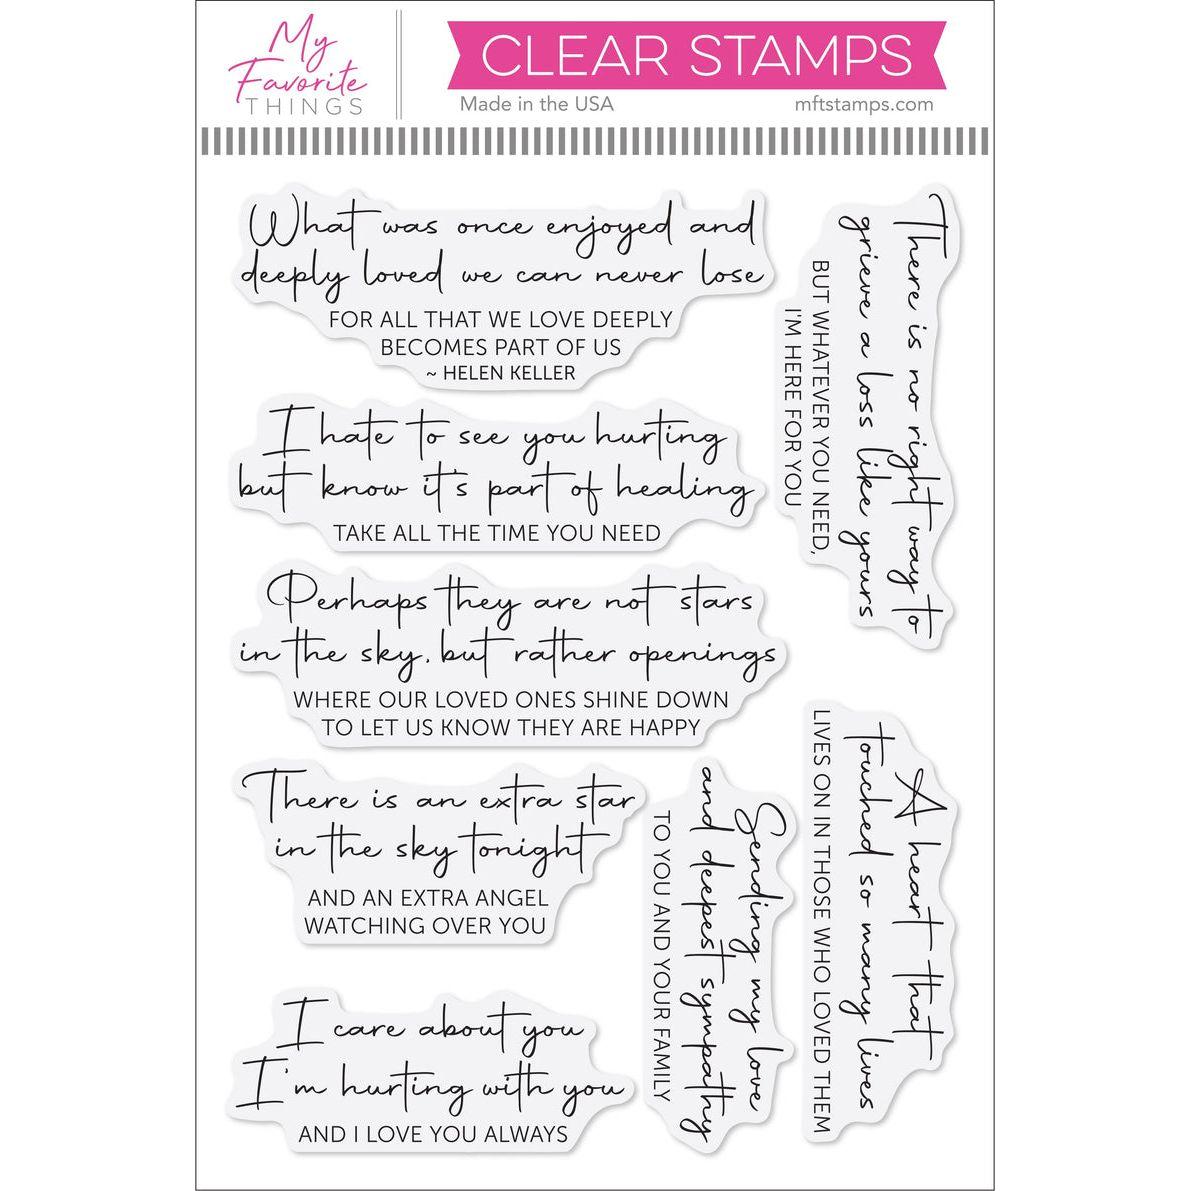 My
Favorite
THINGS
CLEAR STAMPS
Made in the USA
mftstamps.com
What was once enjoyed and
deeply loved we can never lose
FOR ALL THAT WE LOVE DEEPLY
BECOMES PART OF US
~ HELEN KELLER
There is no right way to
grieve a loss like yours
BUT WHATEVER YOU NEED,
I'M HERE FOR YOU
I hate to see you hurting
but know it's part of healing
TAKE ALL THE TIME YOU NEED
Perhaps they are not stars
in the sky, but rather openings
WHERE OUR LOVED ONES SHINE DOWN
TO LET US KNOW THEY ARE HAPPY
There is an extra star
in the sky tonight
AND AN EXTRA ANGEL
WATCHING OVER YOU
Sending my love
and deepest sympathy
TO YOU AND YOUR FAMILY
A heart that
touched so many lives
LIVES ON IN THOSE WHO LOVED THEM
I care about you
I'm hurting with you
AND I LOVE YOU ALWAYS